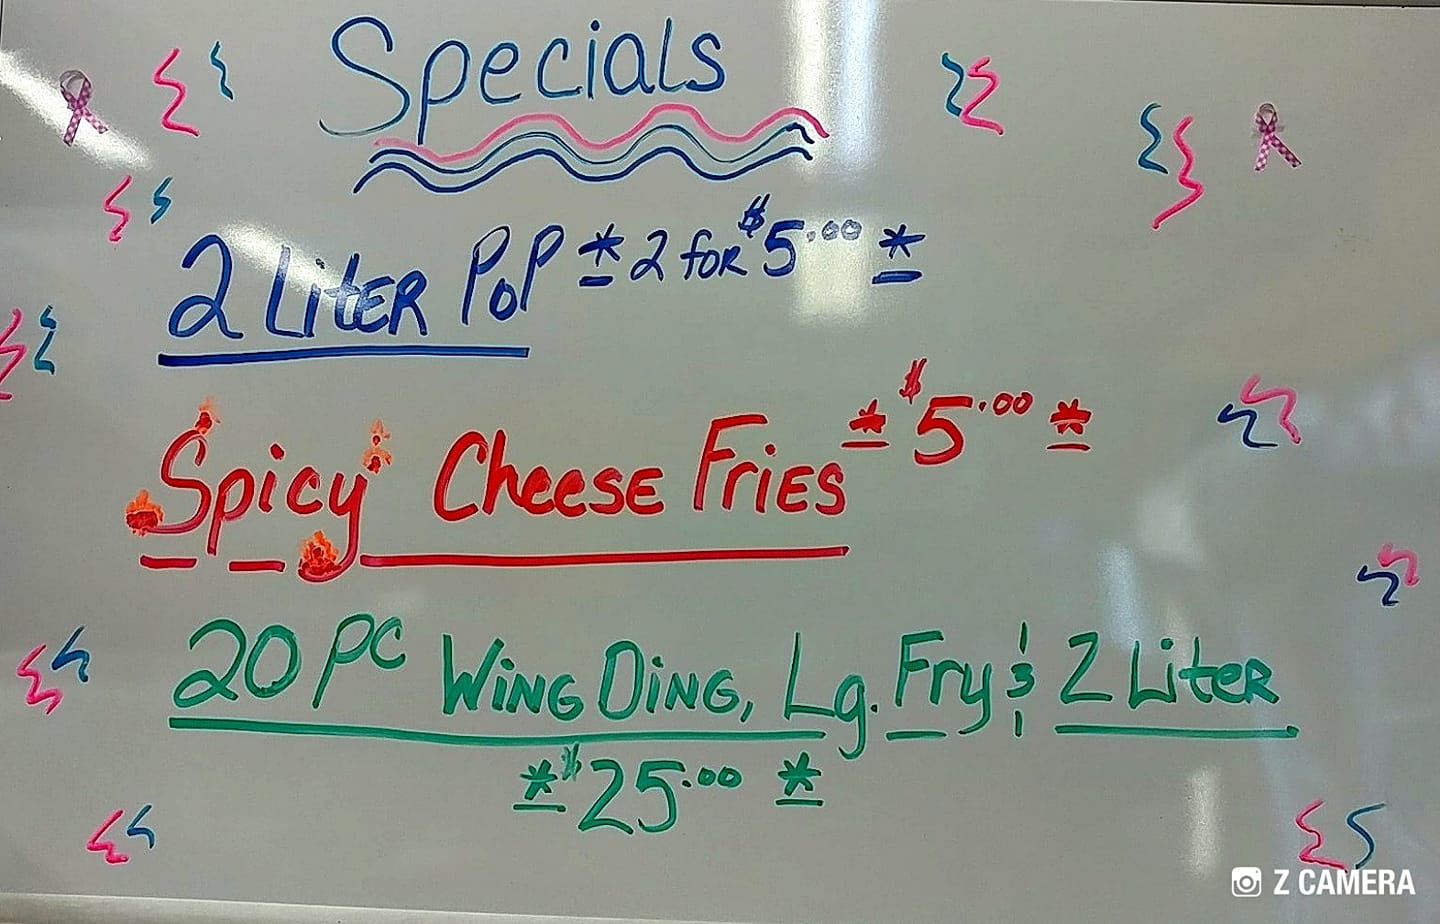 Specials
2 Liter Pop * 2 for $5.00 *
Spicy Cheese Fries * $5.00 *
20 PC Wing Ding, Lg. Fry & 2 Liter
* $25.00 *
Z CAMERA